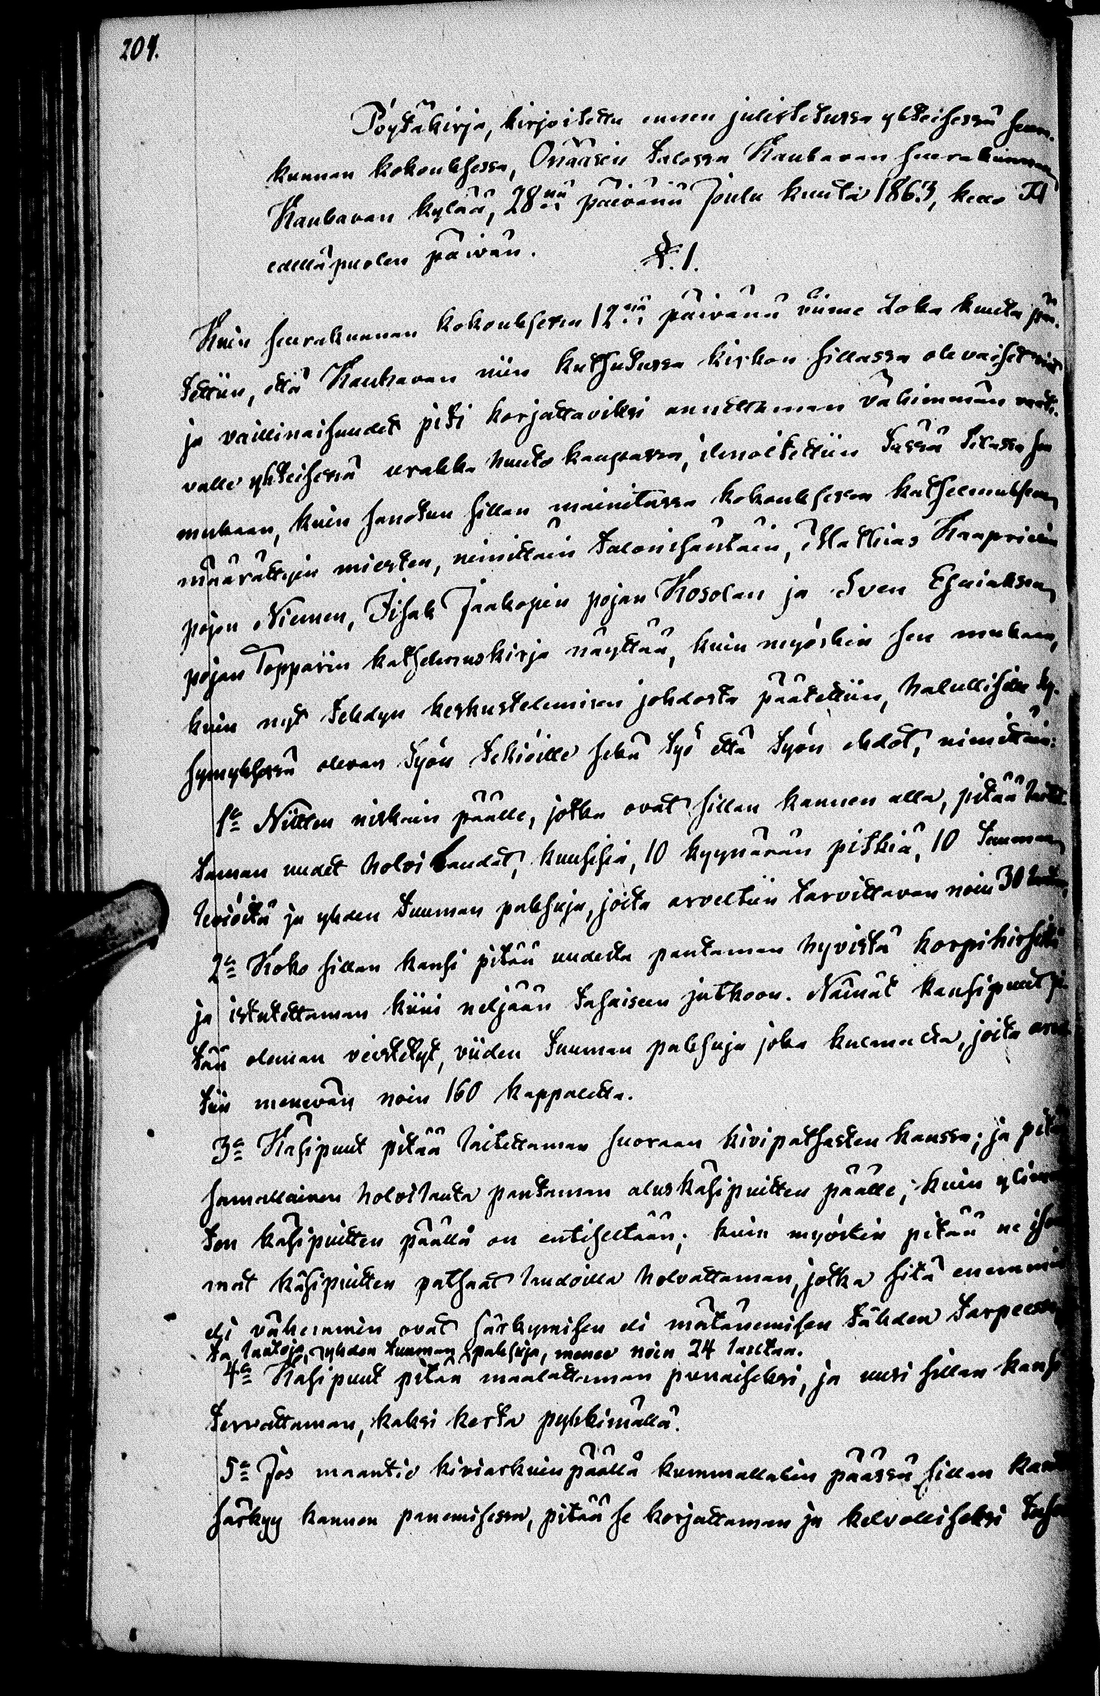 204.
Pöytäkirja, kirjoitettu ennen julistetussa yhteisessä seura-
kunnan kokouksessa, Knaasin talossa Kauhavan seurakunnan
Kauhavan kylää, 28nä päivänä Joulu kuuta 1863, kello
edellä puolen päivän.
§. 1.
Kuin seurakunnan kokouksessa 12nä päivänä viime Loka kuuta pää-
tettiin, että Kauhavan niin kutsutussa kirkon sillassa olevaiset
ja vaillinaisuudet piti korjattaviksi annettaman vähimmän vaati-
valle yhteisessä urakka huuto kaupassa, ilmoitettiin tässä tilassa sen
mukaan, kuin sanotun sillan mainitussa kokouksessa katselmukseen
määrättyin miesten, nimittäin talonisäntäin, Mathias Kaaprielin
pojan Niemen, Iisak Jaakopin pojan Kosolan ja Sven Esaiaksen
pojan Topparin katselmuskirja näyttää, kuin myöskin sen mukaan,
kuin nyt tehdyn keskustelemisen johdosta päätettiin, halullisten ky-
symyksessä olevan työn tekiöille sekä työ että työn ehdot, nimittäin:
1o Niitten niskain päälle, jotka ovat sillan kannen alla, pitää laitet-
taman uudet holvilaudat, kuusisia, 10 kyynärän pitkiä, 10 tuuman
leviöitä ja yhden tuuman paksuja, joita arveltiin tarvittavan noin 30
2o Koko sillan kansi pitää uudesta pantaman hyvistä korpihirsistä
ja istutettaman kiini neljään tasaiseen jatkoon. Nämät kansipuut pi-
tää oleman veistetyt, viiden tuuman paksuja joka kulmalta, joita arvel-
tiin menevän noin 160 kappaletta.
3o Käsipuut pitää laitettaman suoraan kivipatsasten kanssa; ja pitää
samallainen holvilauta pantaman alus käsipuitten päälle, kuin ylimmäis-
ten käsipuitten päällä on entiseltään; kuin myöskin pitää ne
mat käsipuitten patsaat laudoilla holvattaman, jotka sitä enemmin
eli vähemmin ovat särkymisen eli mätänemisen tähden tarpeessa,
ta lautoja, yhden tuuman paksuja, menee noin 24 lautaa.
4o Käsipuut pitää maalattaman punaiseksi, ja uusi sillan kansi
tervattaman, kaksi kerta pyhkimällä.
5o Jos maantie kiviarkuin päällä kummallakin päässä sillan
särkyy kannen panemisessa, pitää se korjattaman ja kelvolliseksi